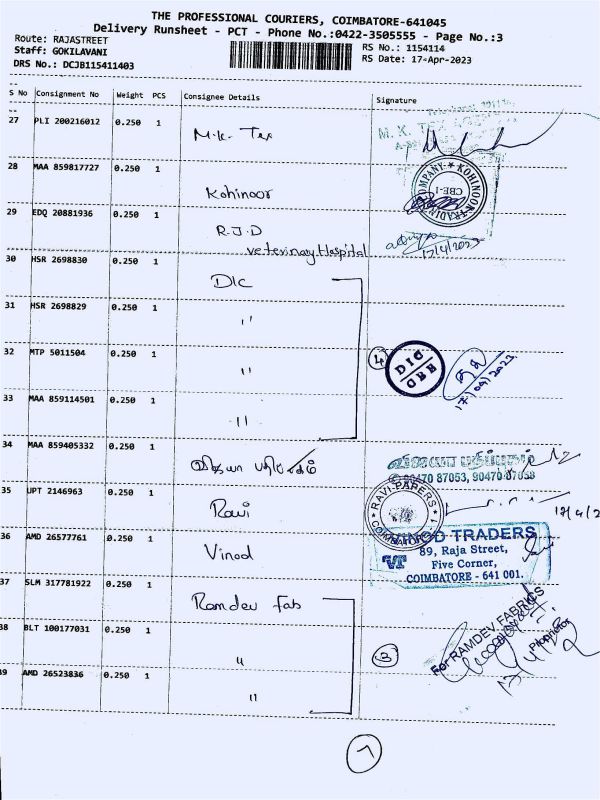 THE PROFESSIONAL COURIERS, COIMBATORE-641045
Delivery Runsheet - PCT - Phone No.:0422-3505555 - Page No.:3
Route: RAJASTREET
Staff: GOKILAVANI
DRS No.: DCJB115411403
RS No.: 1154114
RS Date: 17-Apr-2023
S No Consignment No Weight PCS Consignee Details Signature
27 PLI 200216012 0.250 1 M.K. Tex
M. K.
28 MAA 859817727 0.250 1 Kohinoor
KOHINOOR TRADING COMPANY CBE-1
29 EDQ 20881936 0.250 1 R.J.D
veterinary Hospital
17/4/2023
30 HSR 2698830 0.250 1 DIC
31 HSR 2698829 0.250 1 "
32 MTP 5011504 0.250 1 "
4
DIC
CBE
17/04/2023
33 MAA 859114501 0.250 1 "
34 MAA 859405332 0.250 1
90470 87053, 90470 87058
35 UPT 2146963 0.250 1 Ravi
RAVI PAPERS COIMBATORE-1
17/4/2
36 AMD 26577761 0.250 1 Vinod
VINOD TRADERS
VT
89, Raja Street,
Five Corner,
COIMBATORE - 641 001.
37 SLM 317781922 0.250 1 Ramdev Fab
For RAMDEV FABRICS
Proprietor
38 BLT 100177031 0.250 1 "
3
39 AMD 26523836 0.250 1 "
7